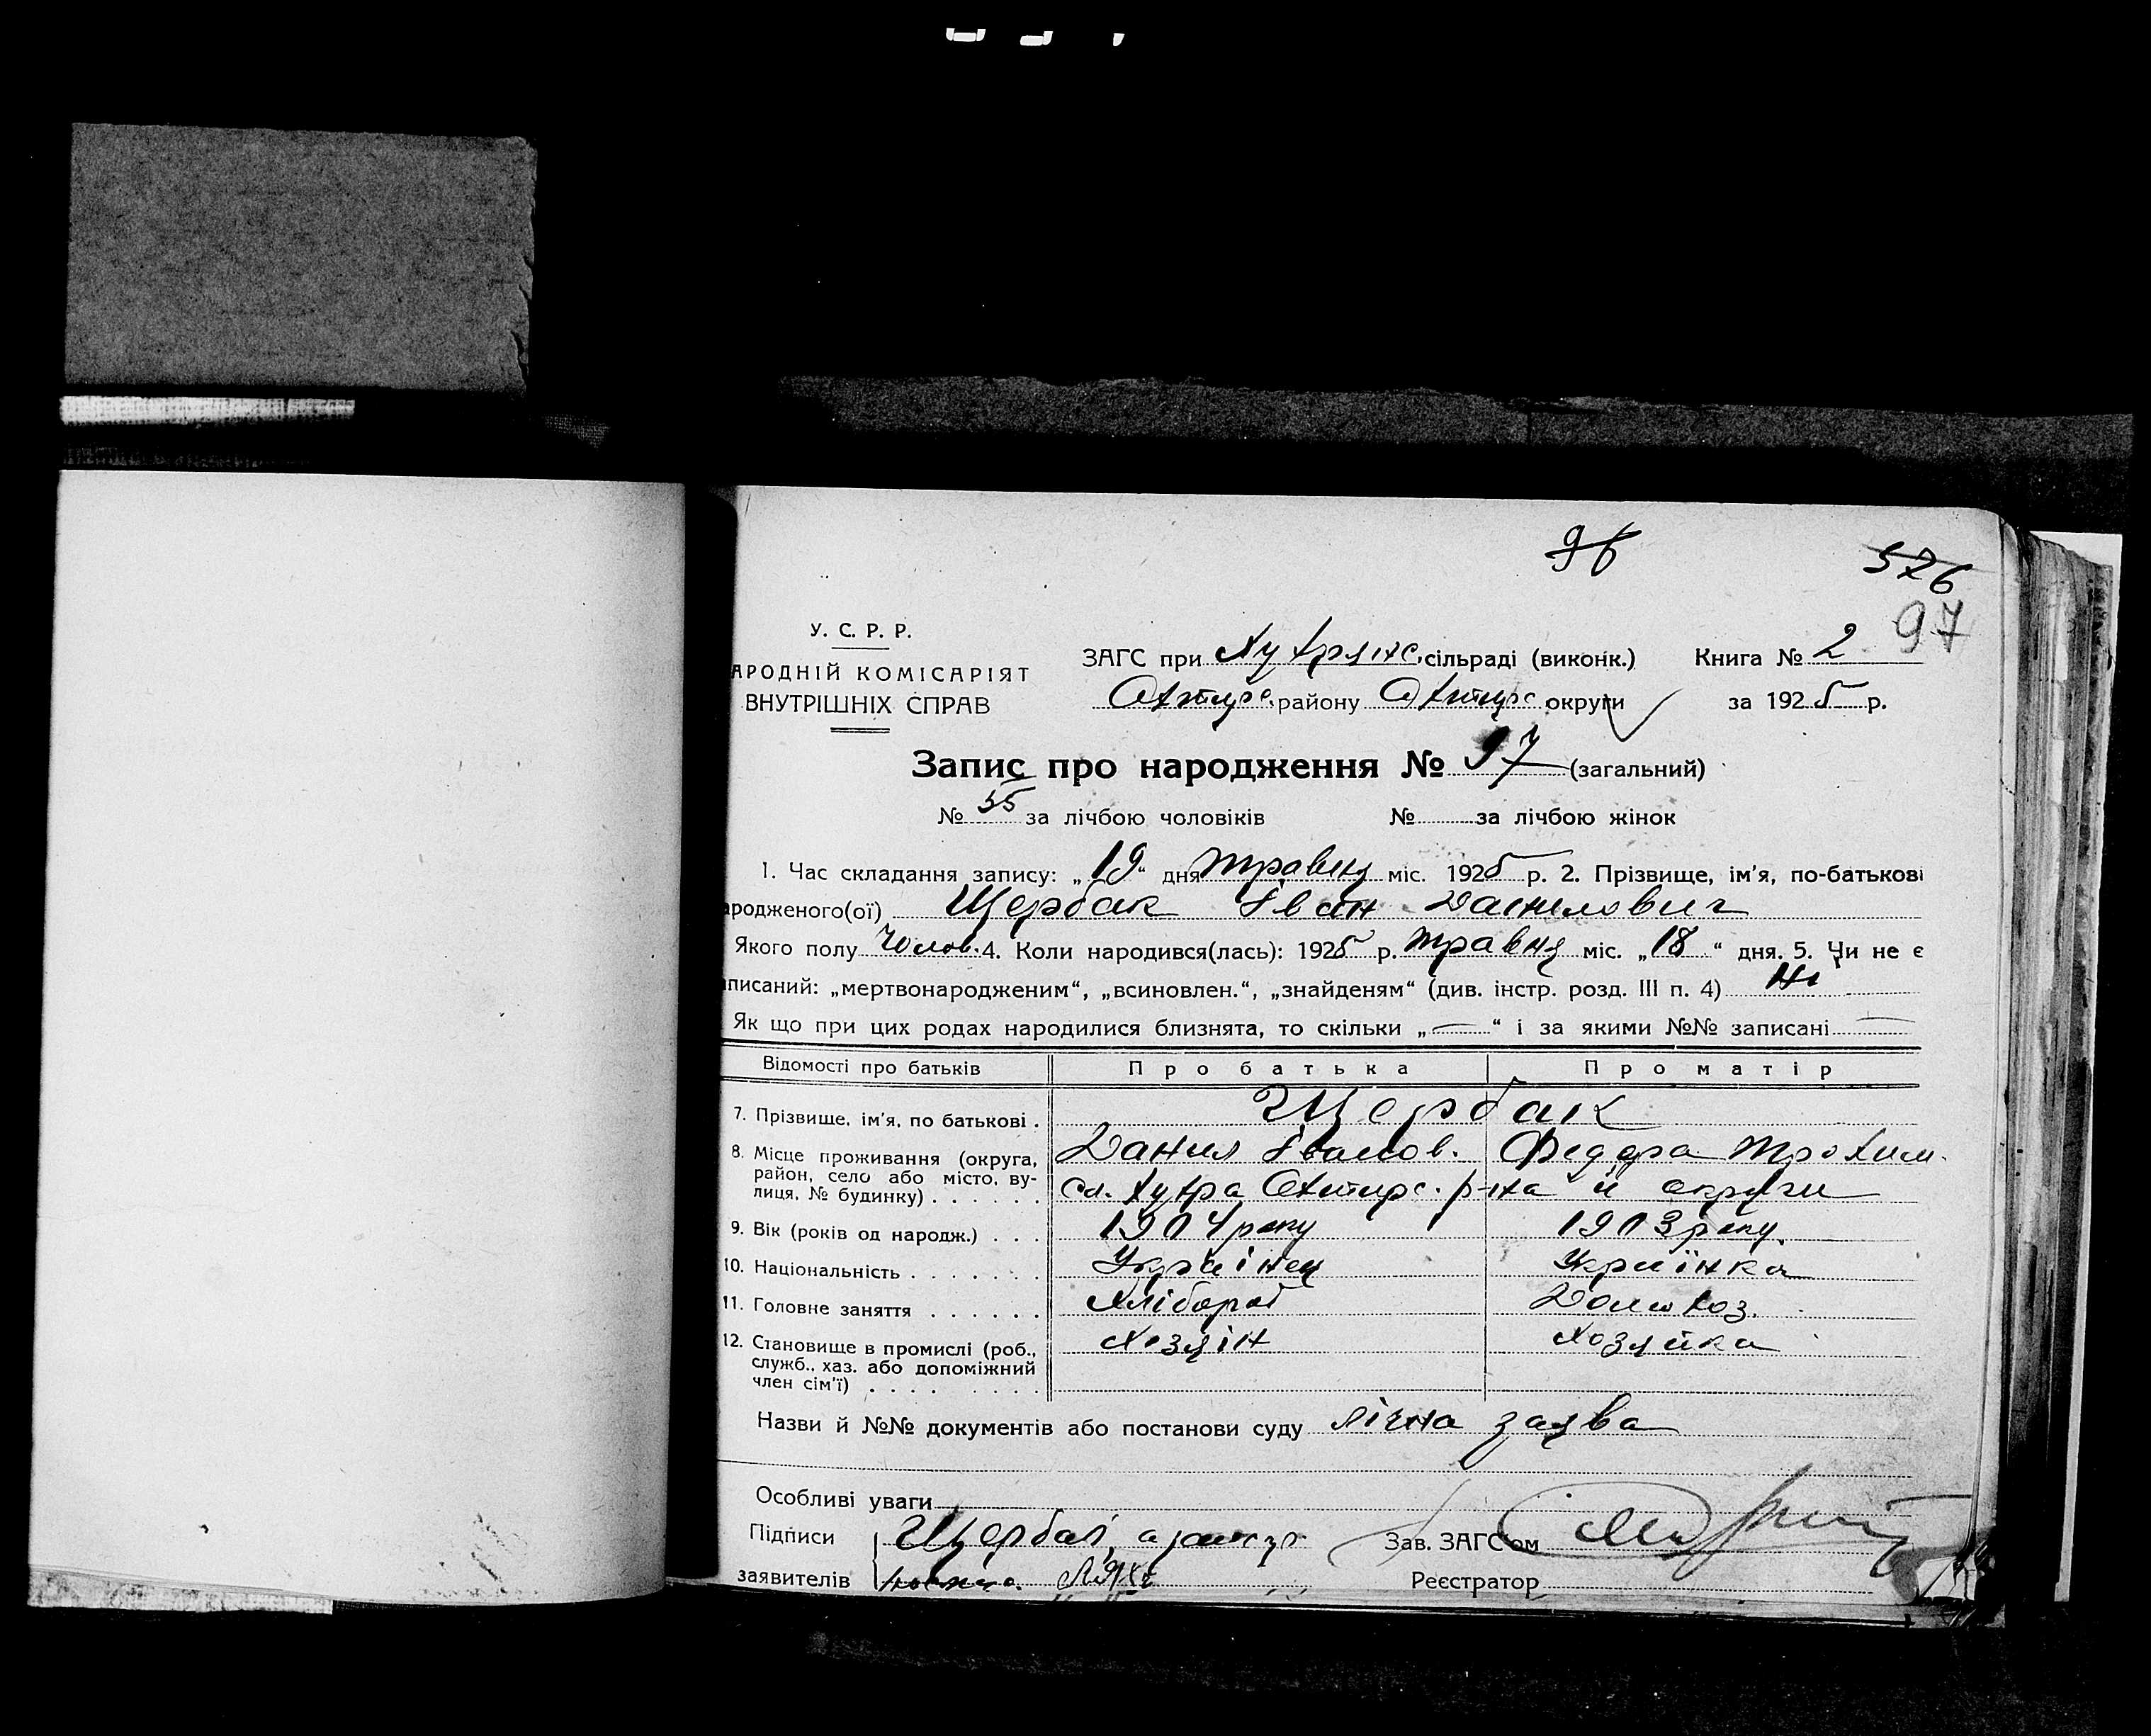 96
576
97
У. С. Р. Р.
АРОДНІЙ КОМІСАРІЯТ
ВНУТРІШНІХ СПРАВ
ЗАГС при Хутрянс. сільраді (виконк.) Книга № 2
Охтирс. району Охтирс. округи за 1925 р.
Запис про народження № 97 (загальний)
№ 55 за лічбою чоловіків № за лічбою жінок
1. Час складання запису: „19“ дня травня міс. 1925 р. 2. Прізвище, ім'я, по-батькові
ародженого(ої) Щербак Іван Данилович
Якого полу Чолов. 4. Коли народився(лась): 1925 р. травня міс. „18“ дня. 5. Чи не є
писаний: „мертвонародженим“, „всиновлен.“, „знайденям“ (див. інстр. розд. III п. 4) Ні
Як що при цих родах народилися близнята, то скільки „—“ і за якими №№ записані —
Відомості про батьків Про батька Про матір
7. Прізвище, ім'я, по батькові . Щербак
8. Місце проживання (округа, район, село або місто, вулиця, № будинку) . . . . . . Данил Іванов. Федора Трохим.
Сл. Хухра Охтирс. р-на й округи
9. Вік (років од народж.) . . . 1904 року 1903 року.
10. Національність . . . . . . . Українец Українка
11. Головне заняття . . . . . . Хлібороб Домохоз.
12. Становище в промислі (роб., служб., хаз. або допоміжний член сім'ї) . . . . . . . . . Хозяїн Хозяйка
Назви й №№ документів або постанови суду Лічна заява
Особливі уваги
Підписи Щербак, а
заявителів
Зав. ЗАГС'ом
Реєстратор